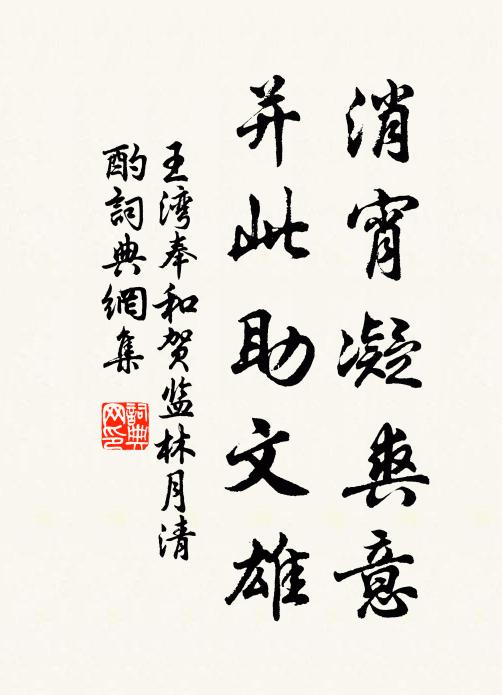 消宵凝爽意
并此助文雄
王湾奉和贺监林月清
酌詞典網集
詞典网印